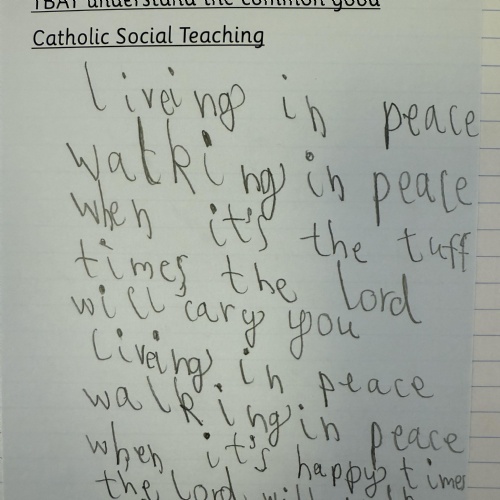 TBAT understand the common good
Catholic Social Teaching
liveing in peace
walking in peace
when it's the tuff
times the lord
will cary you
liveing in peace
walking in peace
when it's happy times
the Lord will